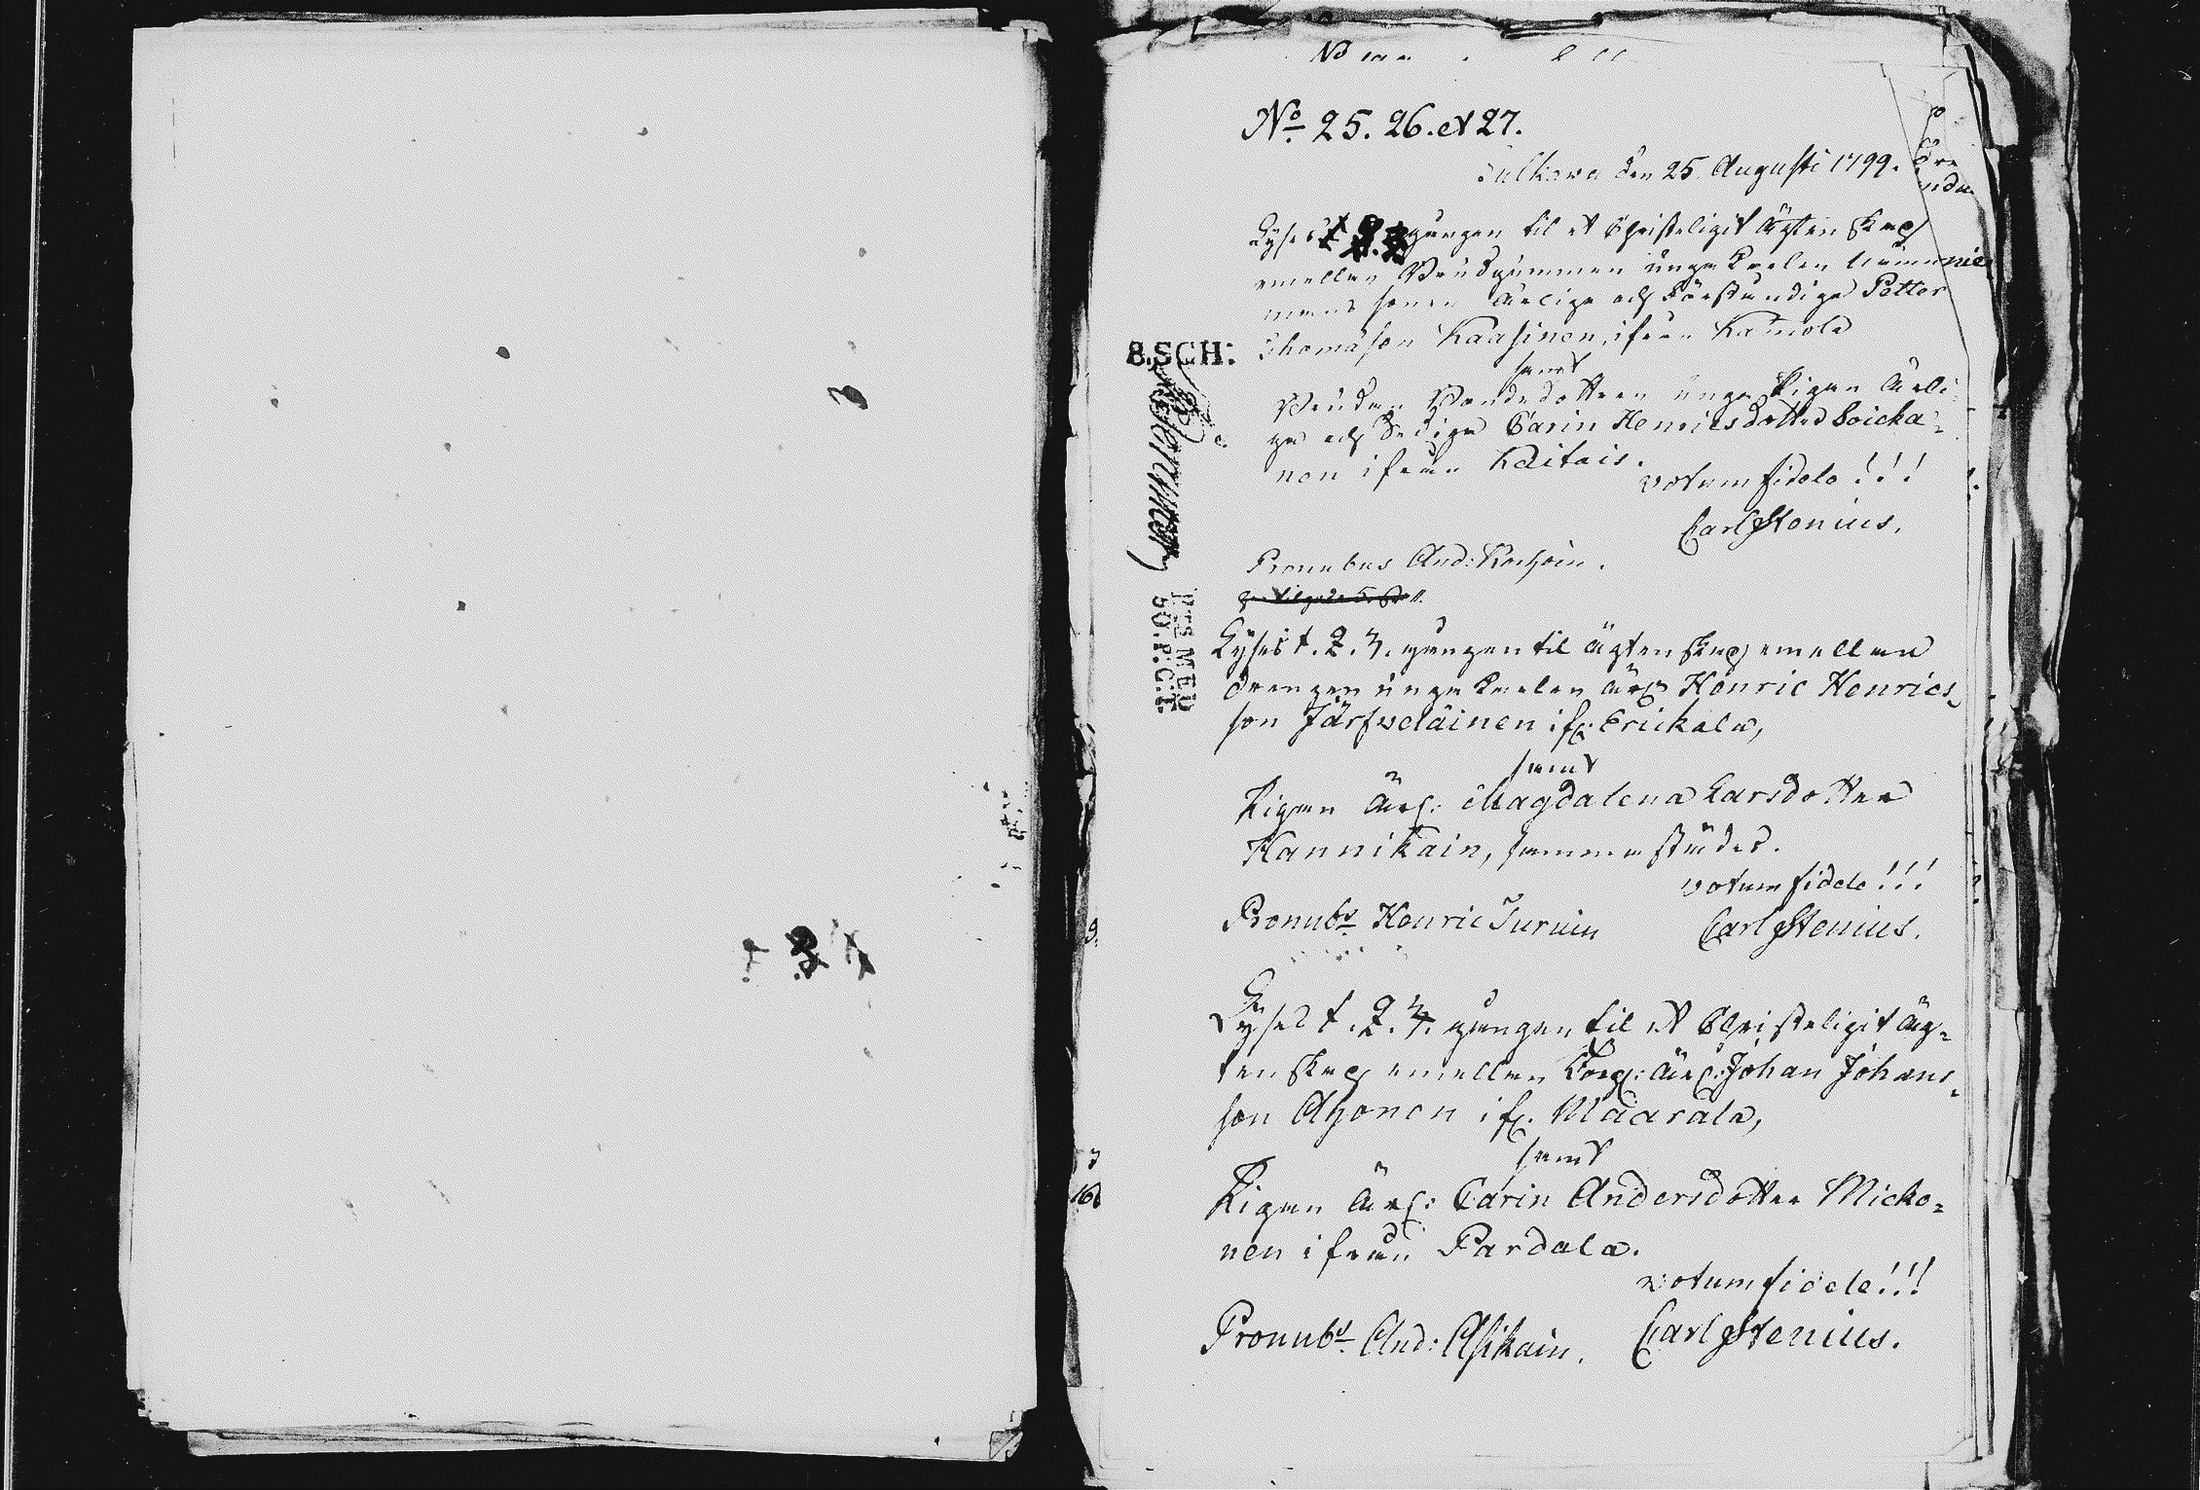 No 25. 26. et 27.
Sulkava den 25 Augusti 1799.
Lyses 1. 2. 3. gången til et Christeligit Ägtenskap
emellan Brudgummen unga Karlen
sonen ärlige och förståndige Petter
Thomasson Kaasinen, ifrån Kamola
samt
Bruden Bondedottren unga Pigan ärli-
ga och dediga Carin Henricsdotter Soicka-
nen ifrån Kaitais.
votum fidele!!!
Carl Stenius.
Pronubus And: Korhoin.
8.SCH:
50.P.C.T.
Lyses 1. 2. 3. gången til ägtenskap emellan
drengen unga Karlen ärl: Henric Henrics-
son Järfweläinen ifr: Erickala,
samt
Pigan Ärl: Magdalena Larsdotter
Hannikain, sammastädes.
votum fidele!!!
Pronubs Henric Turuin
Carl Stenius.
Lyses 1. 2. 3. gången til et Christeligit äg-
tenskap emellan Johan Johans-
son Ahonen ifr. Maarala,
samt
Pigan Ärl: Carin Andersdotter Micko-
nen ifrån Pardala.
votum fidele!!!
Pronubs And: Asikain.
Carl Stenius.